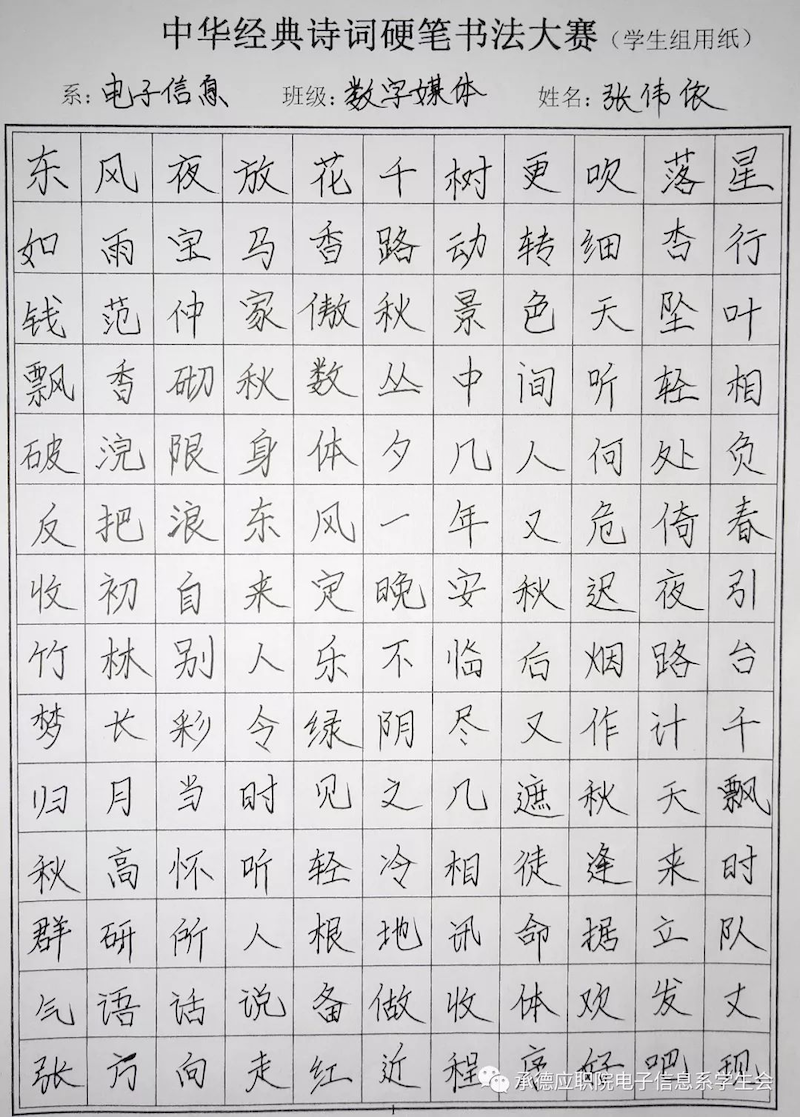 中华经典诗词硬笔书法大赛（学生组用纸）
系：电子信息 班级：数字媒体 姓名：张伟依
东风夜放花千树更吹落星
如雨宝马香路动转细杏行
钱范仲家傲秋景色天坠叶
飘香砌秋数丛中间听轻相
破浣限身体夕几人何处负
反把浪东风一年又危倚春
收初自来定晚安秋迟夜引
竹林别人乐不临后烟路台
梦长彩令绿阴尽又作计千
归月当时见文几遮秋天飘
秋高怀听轻冷相徒逢来时
群研所人根地讯命据立队
气语话说备做收体欢发丈
张方向走红近程序好吧现
承德应职院电子信息系学生会